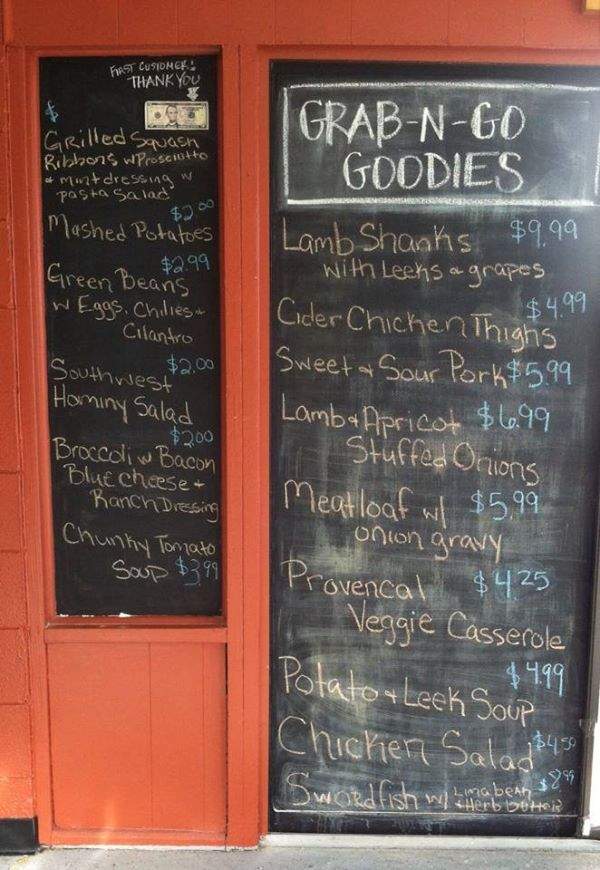 FIRST CUSTOMER!
THANK YOU
$
Grilled Squash
Ribbons w Prosciutto
+ mint dressing w
pasta Salad
$2.00
Mashed Potatoes
$2.99
Green Beans
w Eggs, Chilies +
Cilantro
$2.00
Southwest
Hominy Salad
$2.00
Broccoli w Bacon
Blue cheese +
Ranch Dressing
Chunky Tomato
Soup $3.99
GRAB-N-GO
GOODIES
Lamb Shanks $9.99
with Leeks & grapes
$4.99
Cider Chicken Thighs
Sweet & Sour Pork $5.99
Lamb & Apricot $6.99
Stuffed Onions
Meatloaf w/ $5.99
onion gravy
Provencal $4.25
Veggie Casserole
$4.99
Potato + Leek Soup
Chicken Salad $4.50
Swordfish w/ Lima bean $8.99
+ Herb butter